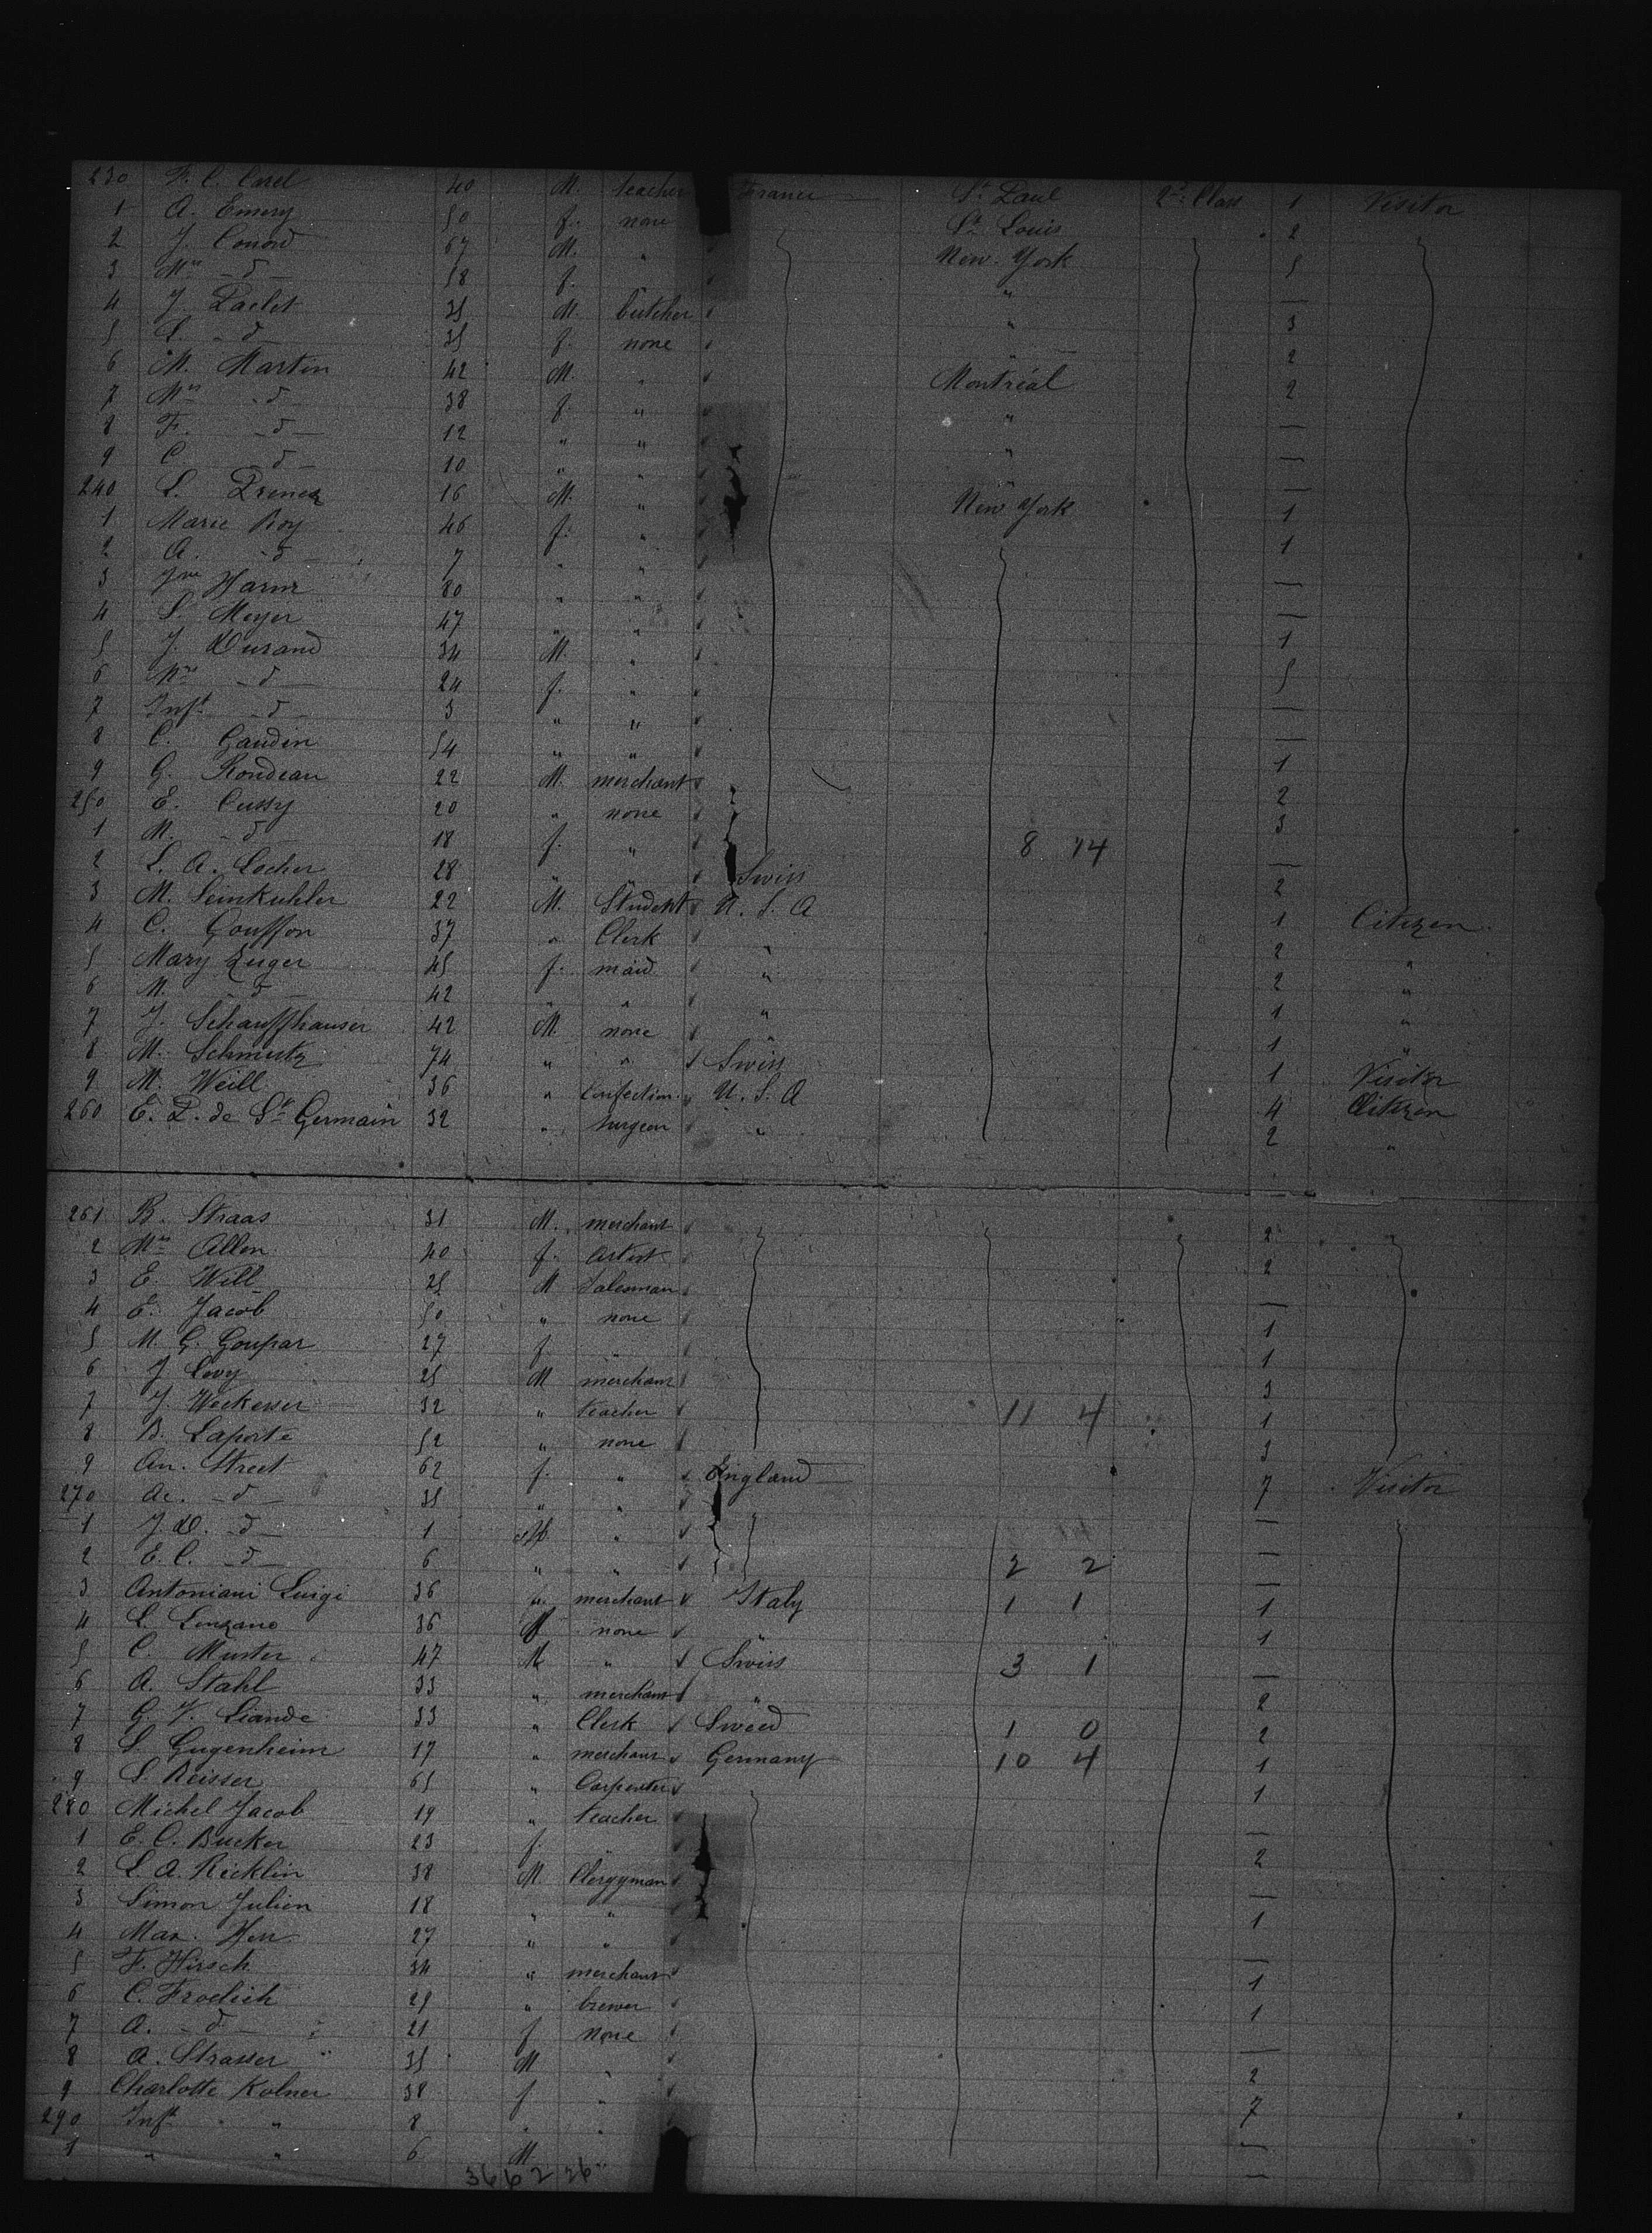 230 F. C. Carel 40 M. teacher France St. Paul 2d Class 1 Visitor
1 A. Emery 50 f. none St. Louis 2
2 J. Conord 67 M. " New-York 5
3 Mrs -d- 58 f. " —
4 J. Paclet 35 M. butcher " 3
5 L. -d- 35 f. none 2
6 M. Martin 42 M. " Montréal 2
7 Mrs -d- 38 f. " " —
8 F. -d- 12 " " " —
9 C. -d- 10 " " " —
240 L. 16 M. " New York 1
1 Marie Roy 46 f. " 1
2 A. -d- 7 " " —
3 80 " " —
4 S. Meyer 47 " " 1
5 J. Durand 34 M. " 5
6 Mrs -d- 24 f. " —
7 Inft -d- 3 " " —
8 C. Gaudin 54 " " 1
9 G. Rondeau 22 M. merchant 2
250 E. Cussy 20 " none 3
1 M. -d- 18 f. " 8 14 —
2 L. A. Locher 28 " " Swiss 2
3 M. Seinkuhler 22 M. Student U. S. A 1 Citizen
4 C. Gouffon 37 " Clerk " 2 "
5 Mary Luger 45 f. maid " 2 "
6 M. -d- 42 " " " 1 "
7 J. Schauffhauser 42 M. none " 1 "
8 M. Schmutz 74 " " Swiss 1 Visitor
9 M. Weill 36 " Confection. U. S. A 4 Citizen
260 E. P. de St Germain 32 " Surgeon " 2 "
261 B. Straas 31 M. merchant 2
2 Mrs Allen 40 f. artist 2
3 E. Will 25 M Salesman —
4 E. Jacob 50 " none 1
5 M. G. Goupar 27 f. " 1
6 J. Levy 25 M merchant 3
7 J. Weckesser 32 " teacher 11 4 1
8 B. Laporte 52 " none 3
9 An. Street 62 f. " England 7 Visitor
270 Ae. -d- 35 " " —
1 J. D. -d- 1 M. " —
2 E. C. -d- 6 " " 2 2 —
3 Antoniani Luigi 36 merchant Italy 1 1 1
4 L. Lenzano 36 none " 1
5 C. Muster 47 M " Swiss 3 1 —
6 A. Stahl 33 " merchant " 2
7 G. V. Liande 33 " Clerk Sweed 1 0 2
8 S. Gugenheim 17 " merchant Germany 10 4 1
9 S. Reisser 65 " Carpenter 1
280 Michel Jacob 19 " teacher —
1 E. C. Bucker 23 f. " 2
2 L. A. Ricklin 38 M. Clergyman —
3 Simon Julien 18 " " 1
4 Max. Herr 27 " " —
5 F. Hirsch 34 " merchant 1
6 C. Froelich 29 " brewer 1
7 A. -d- 21 f none —
8 A. Strasser 35 M " 2
9 Charlotte Kolner 38 f " 7
290 Inft " 8 " " —
1 " " 6 M. " —
3662 26